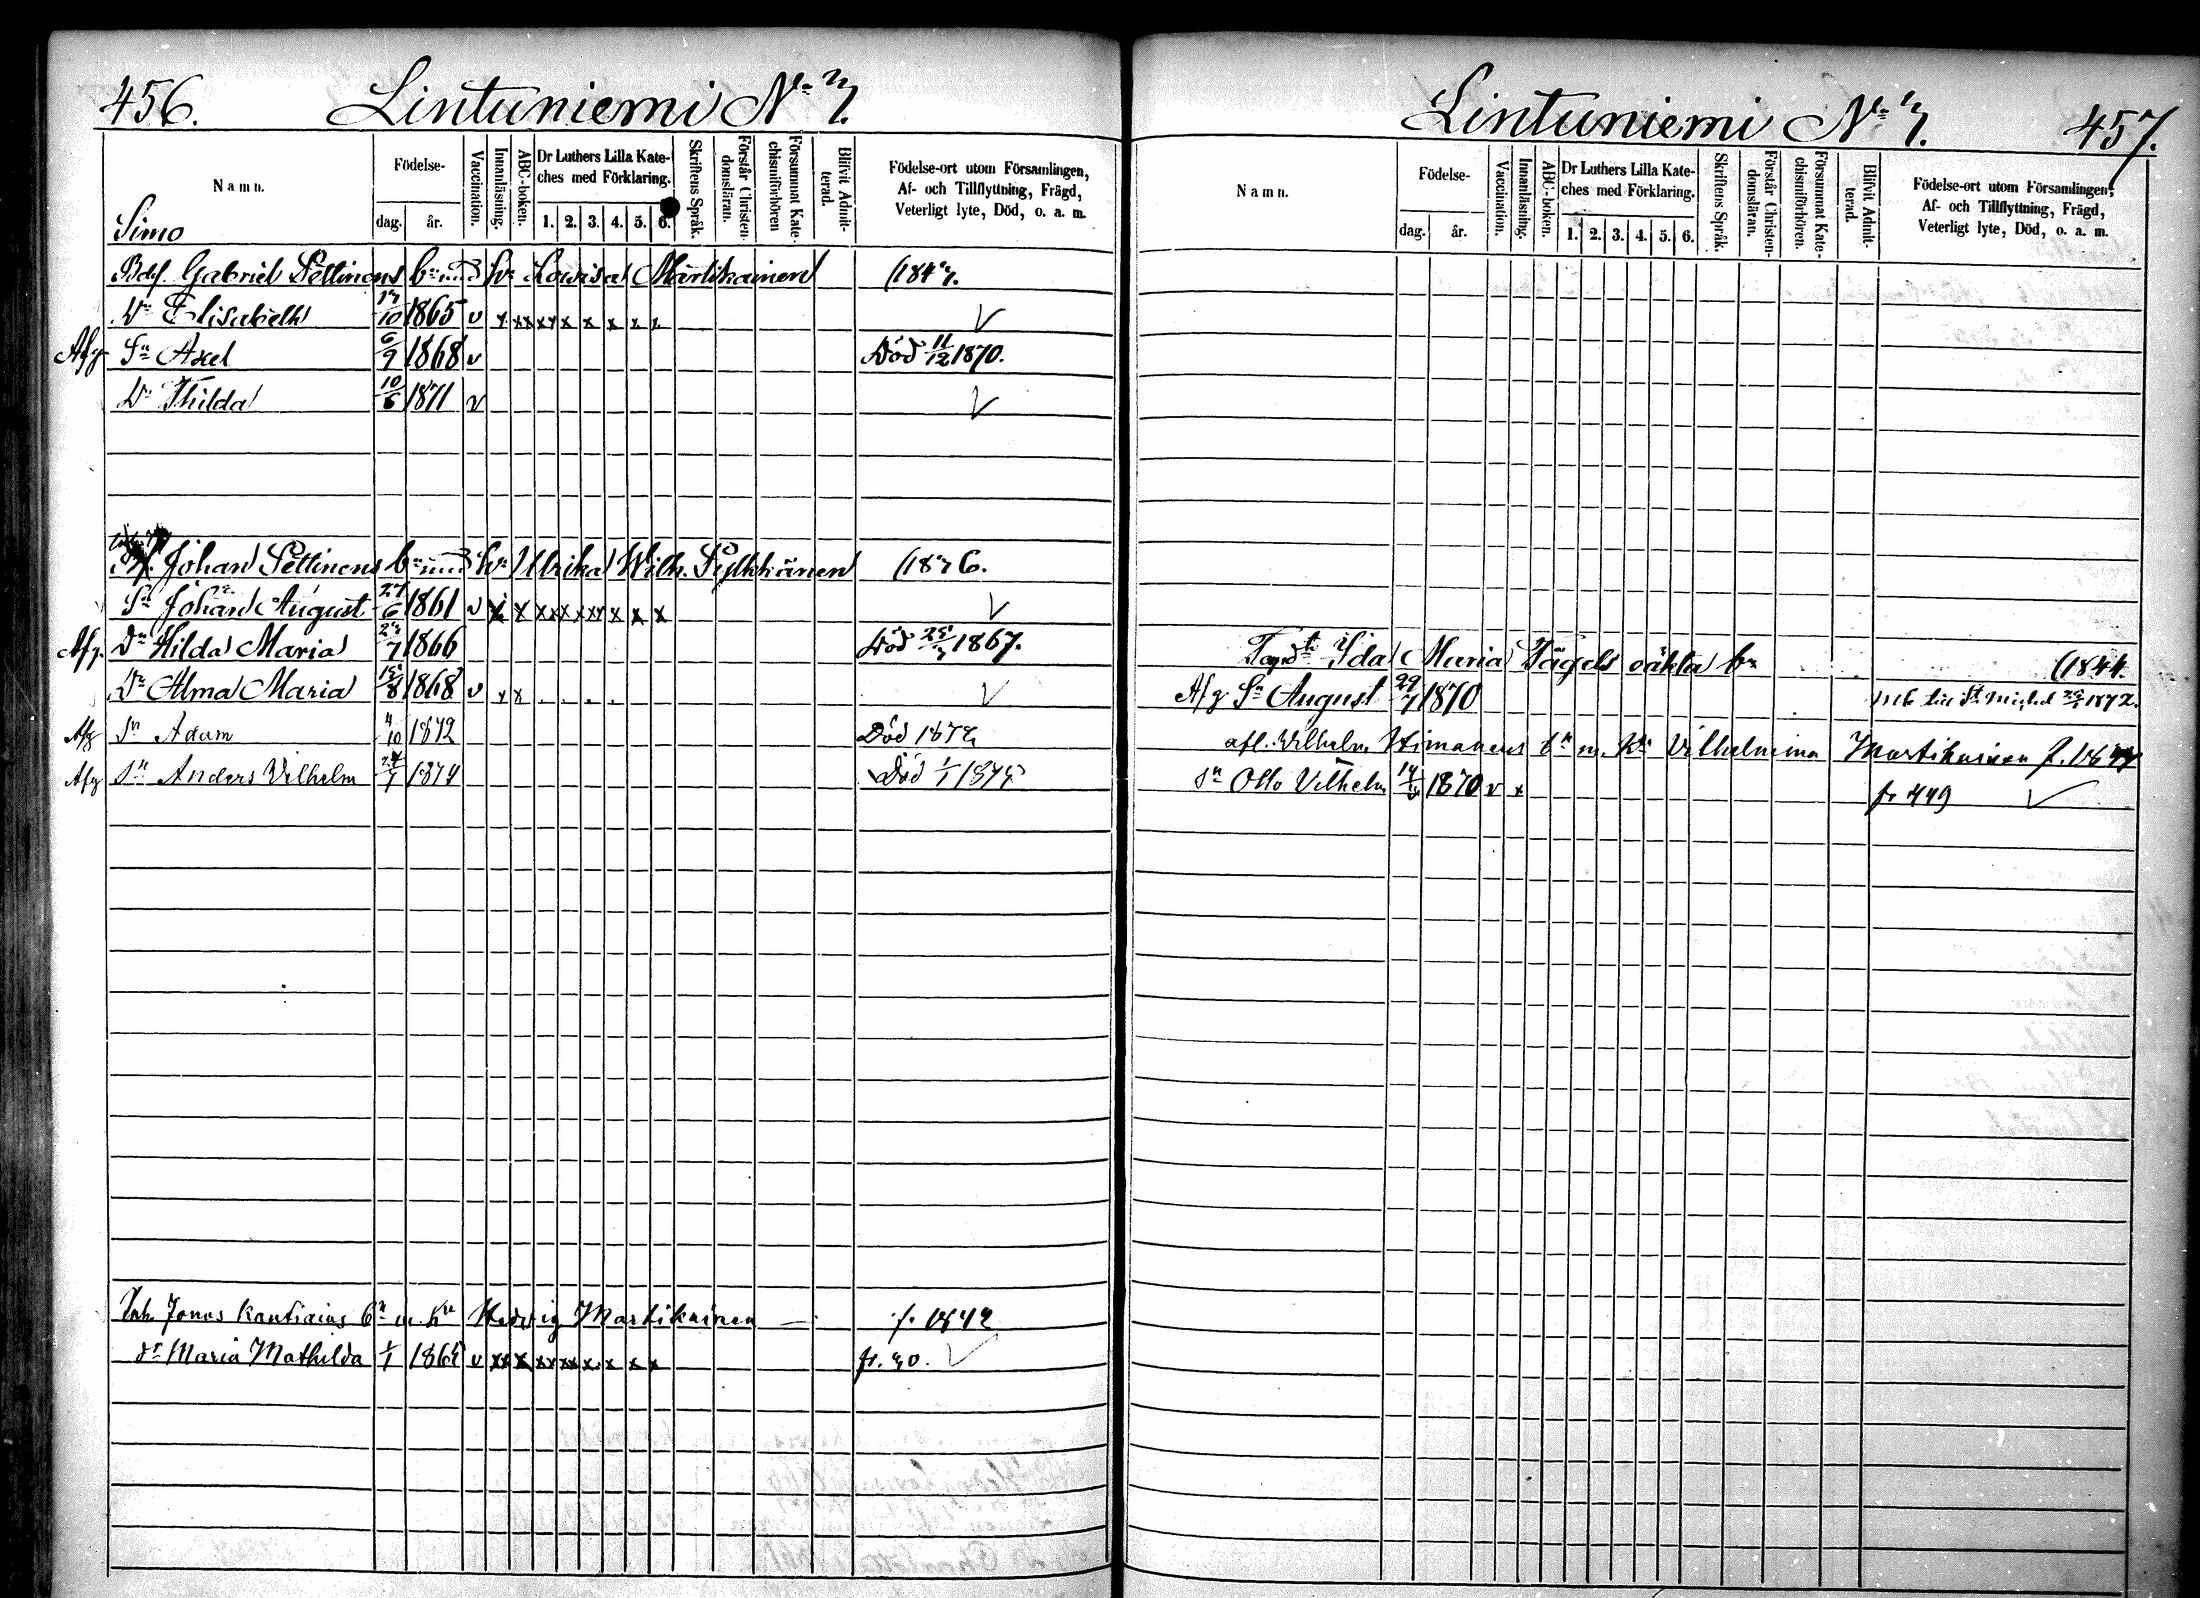 456. Lintuniemi No 7.
Namn.
Födelse-
dag.
år.
Vaccination.
Innanläsning.
ABC-boken.
Dr Luthers Lilla Kate-
ches med Förklaring.
1. 2. 3. 4. 5. 6.
Skriftens Språk.
Förstår Christen-
domsläran.
Försummat Kate-
chismiförhören
Blifvit Admit-
terad.
Födelse-ort utom Församlingen,
Af- och Tillflyttning, Frägd,
Veterligt lyte, Död, o. a. m.
Simo
Gabriel Pettinens bn med hu Lovisa Martikainen (1847.
Dr Elisabeth 17/10 1865 v x xx xx x x x x x
Afg Sn Axel 6/9 1868 v Död 11/12 1870.
Dr Thilda 10/6 1871 v
Johan Pettinens bn med hu Ulrika Wilh. Pylkkänen
Sn Johan August 27/6 1861 v
Afg. Dr Hilda Maria 1866 Död 1867.
Dr Alma Maria 1868 v x x
Afg Sn Adam 4/10 1872 Död
Afg Sn Anders Vilhelm 1874 Död
Inh. Jonas bn m. hu Hedvig Martikainen f. 1842
dr Maria Mathilda 1/1 v
Lintuniemi No 7. 457.
Namn.
Födelse-
dag.
år.
Vaccination.
Innanläsning.
ABC-boken.
Dr Luthers Lilla Kate-
ches med Förklaring.
1. 2. 3. 4. 5. 6.
Skriftens Språk.
Förstår Christen-
domsläran.
Försummat Kate-
chismiförhören.
Blifvit Admit-
terad.
Födelse-ort utom Församlingen,
Af- och Tillflyttning, Frägd,
Veterligt lyte, Död, o. a. m.
Ida Maria Tägels oäkta bn (1844.
Afg Sn August 29/7 1870 till St Michel 1872.
Vilhelm Himanens bn m. hu Vilhelmina Martikainen
Sn Otto Vilhelm 1870 v x
fr 449